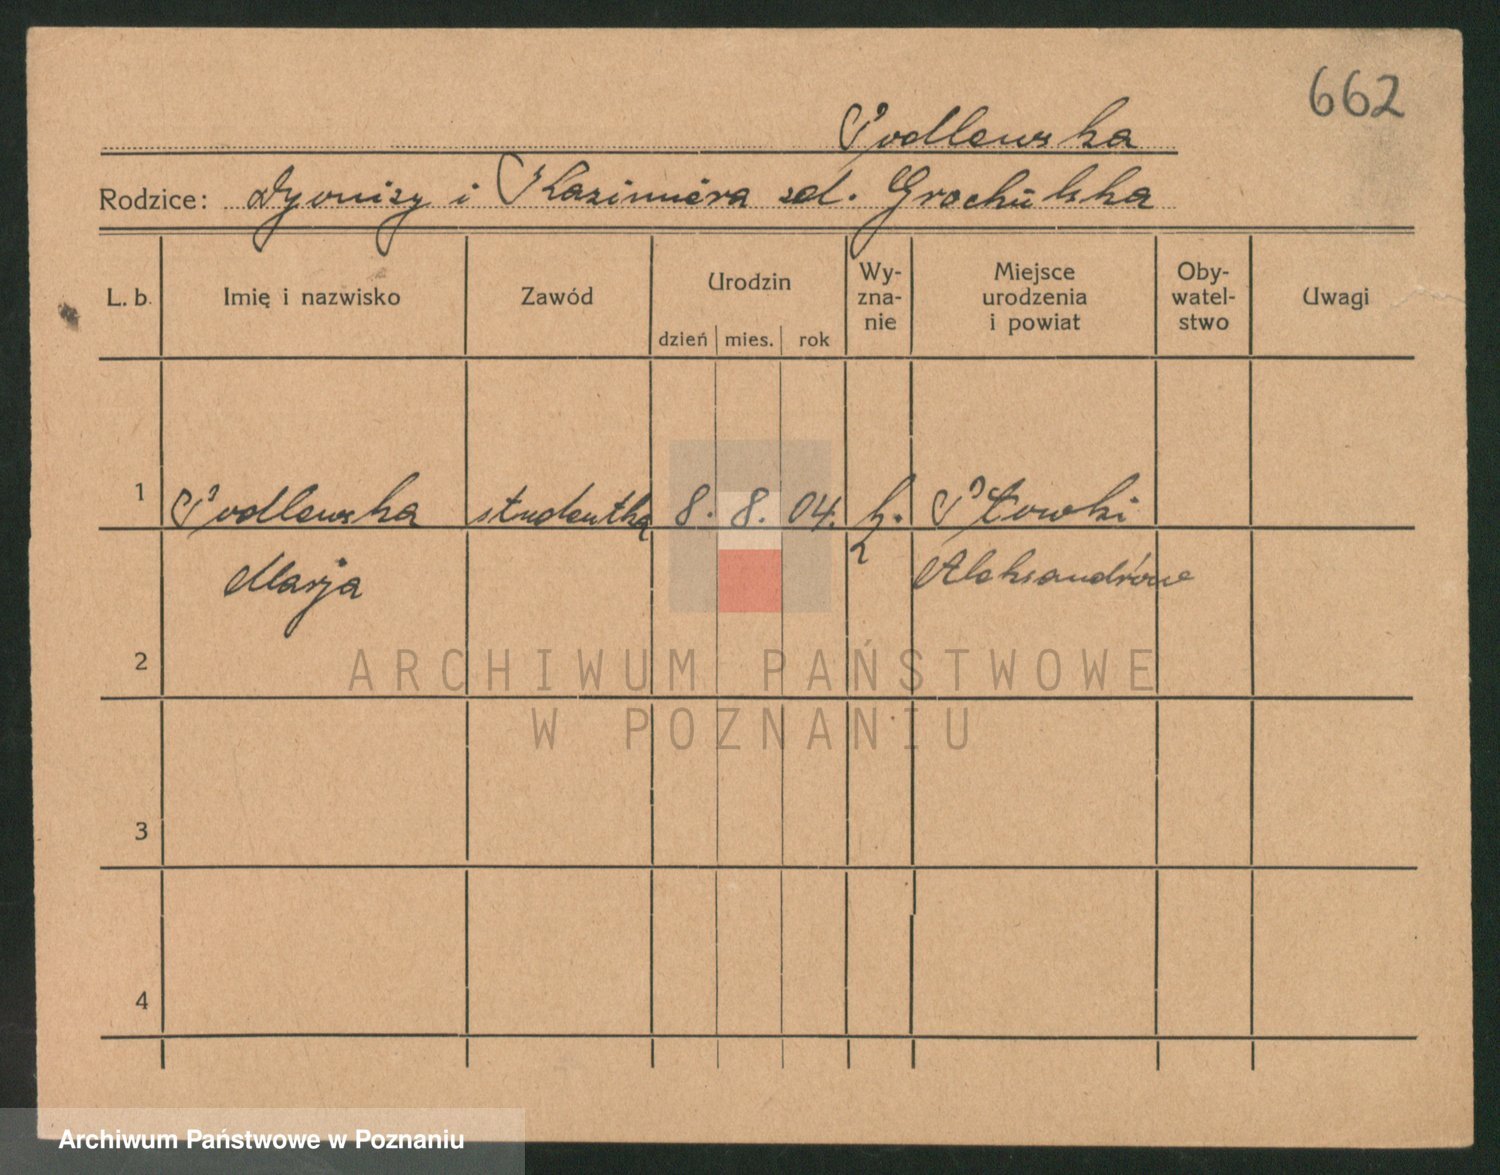 662
Podlewska
Rodzice: Dyonizy i Kazimiera zd. Grochulska
L. b. Imię i nazwisko Zawód Urodzin dzień mies. rok Wy-zna-nie Miejsce urodzenia i powiat Oby-watel-stwo Uwagi
1 Podlewska studentka 8. 8. 04. k. Piłowki
Marja Aleksandrowe
2
ARCHIWUM PAŃSTWOWE
W POZNANIU
3
4
Archiwum Państwowe w Poznaniu